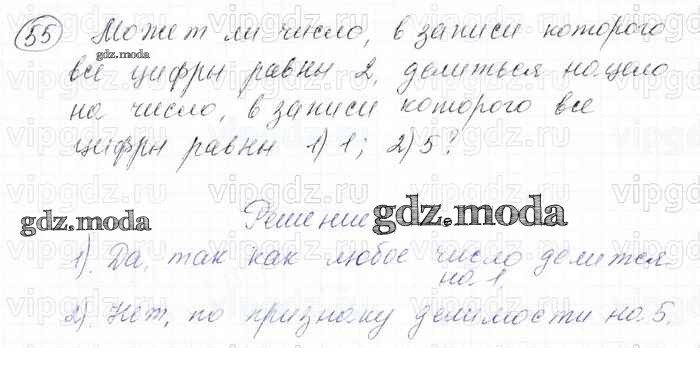 55 Может ли число, в записи которого
gdz.moda
все цифры равны 2, делиться нацело
на число, в записи которого все
цифры равны 1) 1; 2) 5?
gdz.moda
Решение
gdz.moda
1). Да, так как любое число делится
на 1.
2). Нет, по признаку делимости на 5.